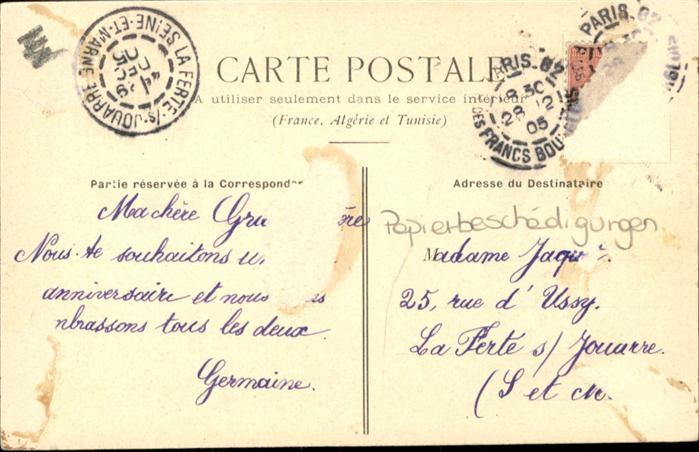 LA FERTE-S/S JOUARRE
SEINE-ET-MARNE
PARIS. 62
8 30
28 12
05
DES FRANCS BOURGEOIS
PARIS. 62
CARTE POSTALE
A utiliser seulement dans le service intérieur
(France, Algérie et Tunisie)
Partie réservée à la Correspondan
Ma chère Gra
Nous te souhaitons u
anniversaire et nous
mbrassons tous les deux
Germaine.
Adresse du Destinataire
Papierbeschädigungen
Madame Jaqu
25, rue d'Ussy.
La Ferte s/ Jouarre.
(S et M.